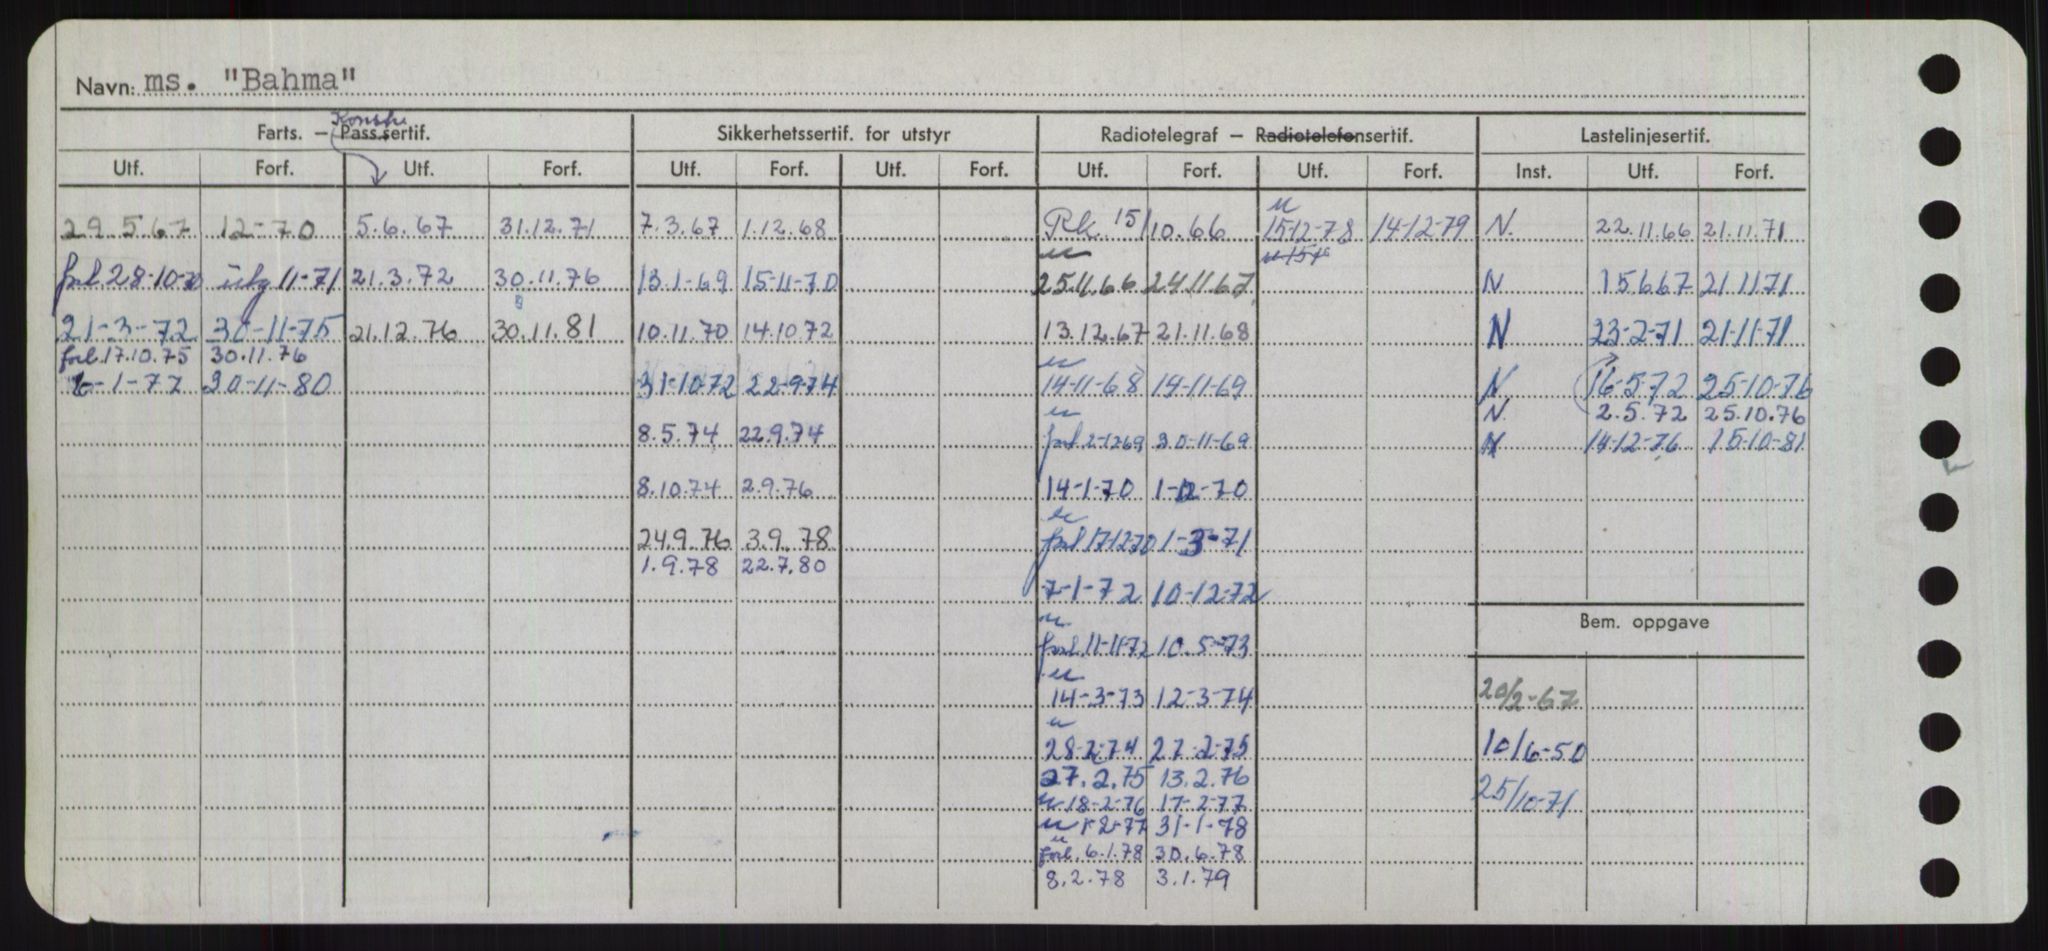 Navn: ms. "Bahma"
Konstr.
Farts. — Pass.sertif. Sikkerhetssertif. for utstyr Radiotelegraf — Radiotelefonsertif. Lastelinjesertif.
Utf. Forf. Utf. Forf. Utf. Forf. Utf. Forf. Utf. Forf. Utf. Forf. Inst. Utf. Forf.
29.5.67 12-70 5.6.67 31.12.71 7.3.67 1.12.68 Rk 15/10.66 15-12-78 14-12-79 N. 22.11.66 21.11.71
forl 28-10-70 utg 11-71 21.3.72 30.11.76 13.1-69 15-11-70 25.11.66 24.11.67 N 15667 21.11.71
21-3-72 30-11-75 21.12.76 30.11.81 10.11.70 14.10.72 13.12.67 21.11.68 N 23-2-71 21-11-71
forl. 17.10.75 30.11.76
6-1-77 30-11-80 31-10-72 22-9-74 14-11-68 14-11-69 N 16-5-72 25-10-76
N. 2.5.72 25.10.76
8.5.74 22.9.74 forl 2-12-69 30-11-69 N 14-12-76 15-10-81
8.10.74 2.9.76 14-1-70 1-12-70
24.9.76 3.9.78 forl 17-12-70 1-3-71
1.9.78 22.7.80
7-1-72 10-12-72
Bem. oppgave
forl 11-11-72 10.5-73
14-3-73 12-3-74 20/2-67
28-2-74 27-2-75 10/6-50
27.2.75 13.2.76
18-2-76 17-2-77 25/10-71
1-2-77 31-1-78
forl. 6.1.78 30.6.78
8.2.78 3.1.79